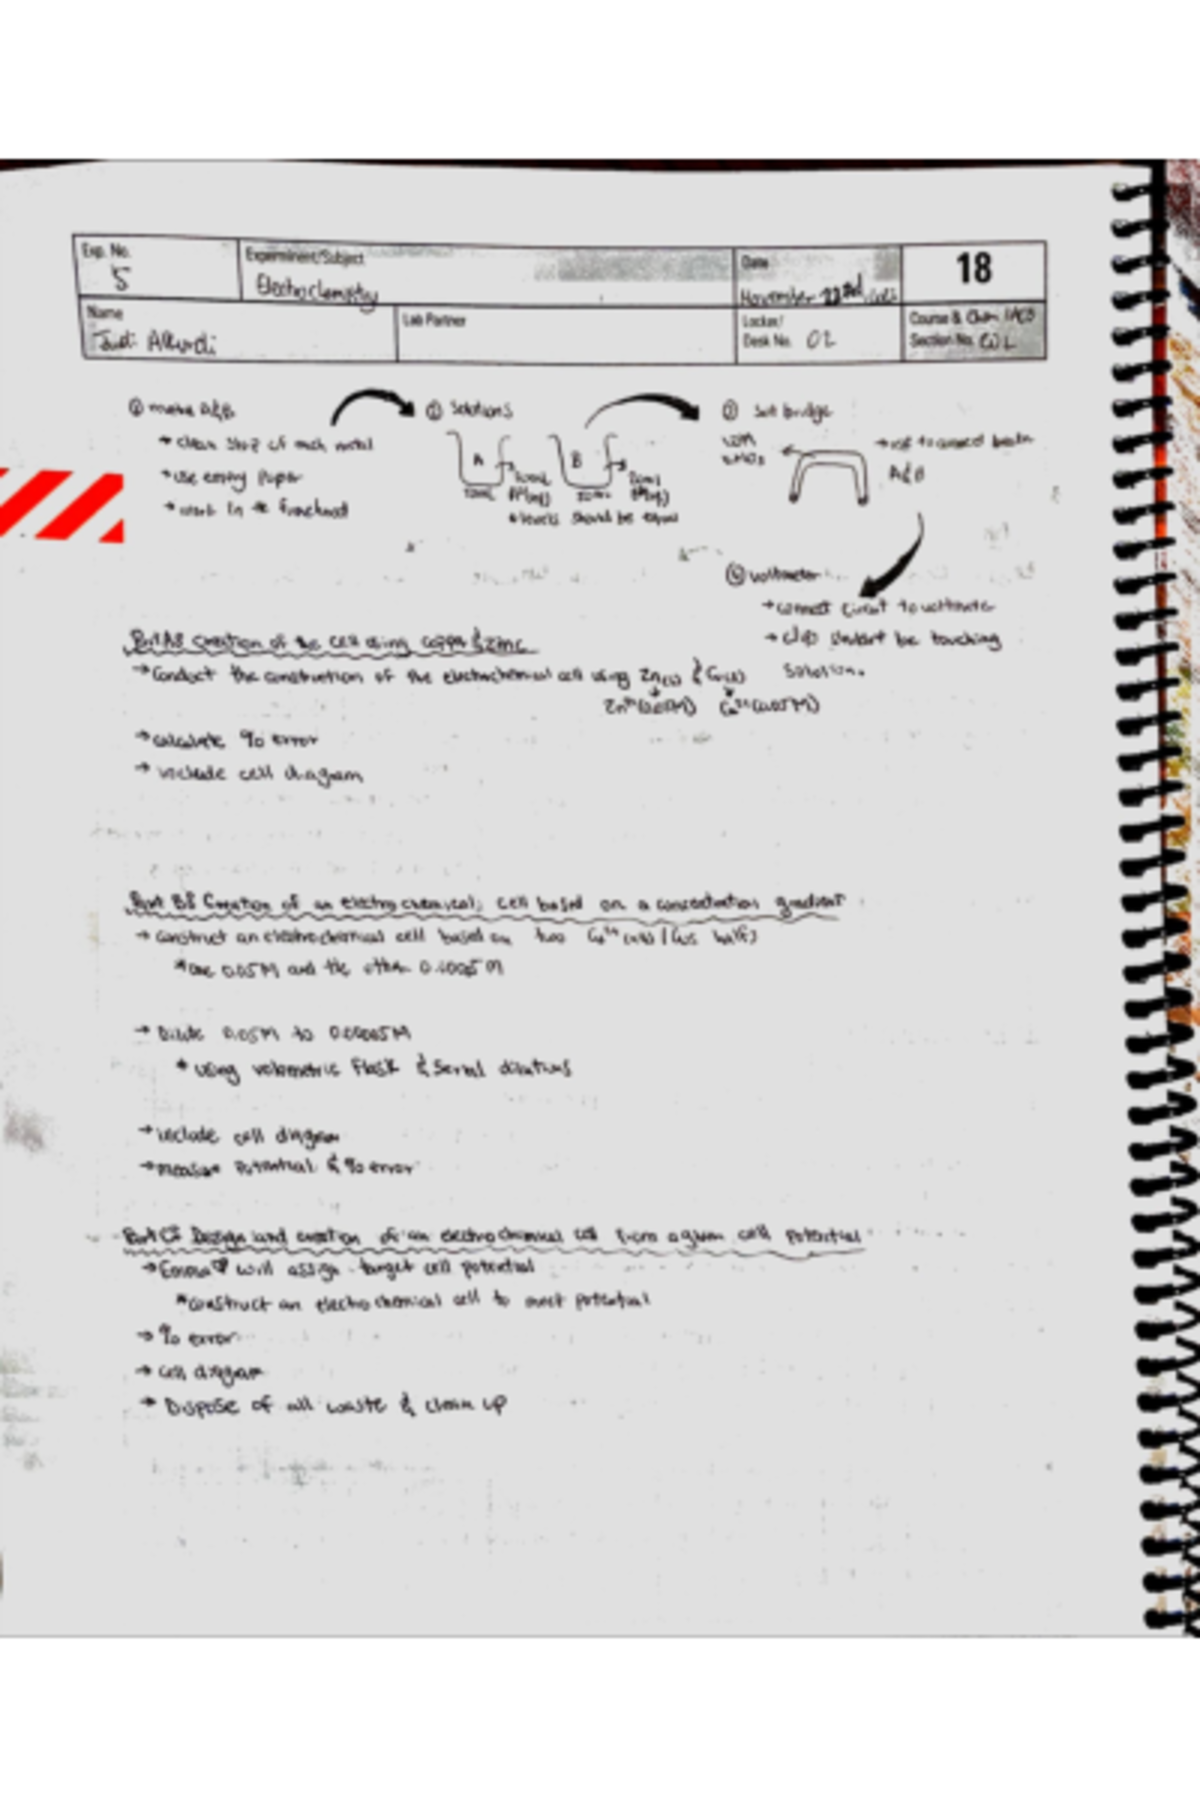 Exp. No.
5
Experiment/Subject
Electrochemistry
Date
November 22nd,
18
Name
Judi
Lab Partner
Locker/
Desk No. 02
Course & Chem
Section No.
① make A&B
→ clean strip of each metal
→ use emery paper
→ work in the fumehood
② Solutions
A
B
* levels should be equal
③ Salt bridge
→ use to connect beaker
A&B
④ voltmeter
→ connect circuit to voltmeter
→ clip shouldn't be touching
solution.
Part A: Creation of the cell using copper & zinc
→ Conduct the construction of the electrochemical cell using Zn(s) & Cu(s)
→ calculate % error
→ include cell diagram
Part B: Creation of an electrochemical cell based on a concentration gradient
→ construct an electrochemical cell based on two
* one 0.05M and the other 0.0005M
→ Dilute 0.05M to 0.00005M
* using volumetric flask & serial dilutions
→ include cell diagram
→ measure potential & % error
Part C: Design and creation of an electrochemical cell from a given cell potential
→ Emma will assign target cell potential
* construct an electrochemical cell to meet potential
→ % error
→ cell diagram
→ Dispose of all waste & clean up